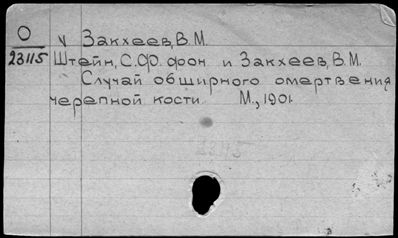 О
23115
у Закхеев, В.М.
Штейн, С.Ф. фон и Закхеев, В.М.
Случай обширного омертвения
черепной кости. М., 1901.